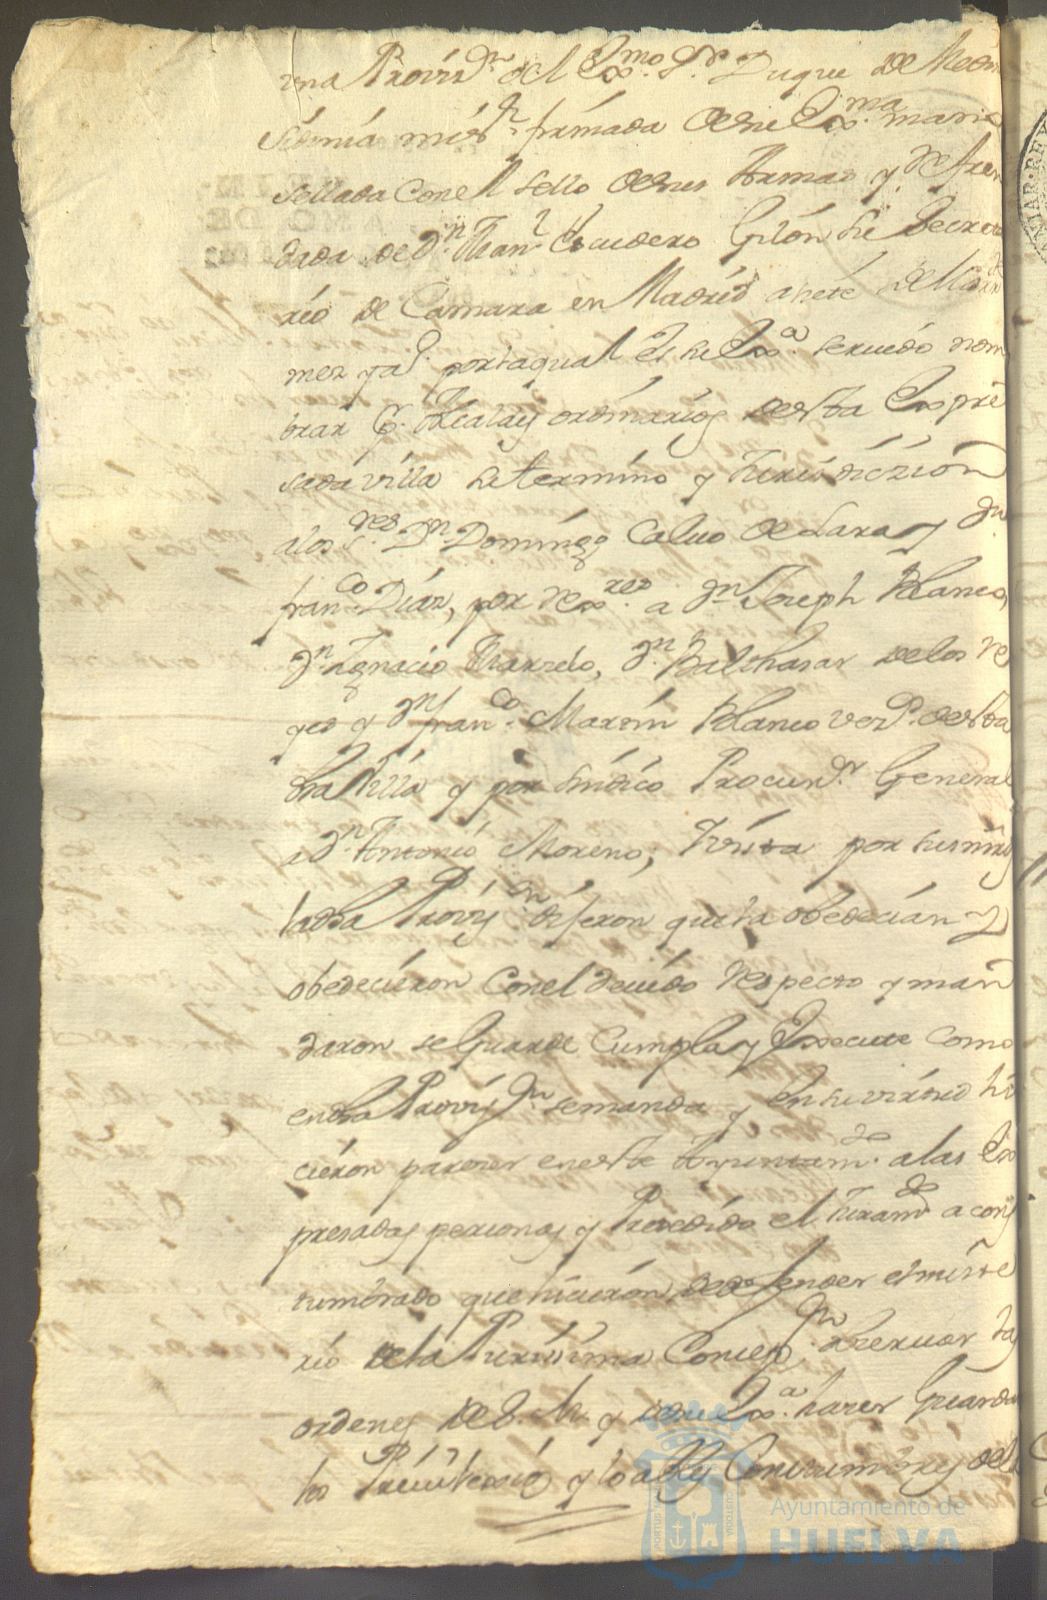 una Provis.on del Ex.mo S.r Duque de Medin
Sidonia mi S.r firmada de su Ex.ma mano
sellada con el sello de sus Armas y refren
dada de D.n Fran.co Escudero Gilón su Secreta
rio de Camara en Madrid a siete de
mes y a.o por la qual es su Ex.a servido nom
brar p. Alcaldes ordinarios de esta Expre
sada villa su termino y Jurisdiczion
a los S.res D.n Domingo Calvo de Lara y D.n
fran.co Diáz, por Rex.res a D.n Joseph Blanco,
D.n Ygnacio, D.n Balthasar de los Re
yes y D.n fran.co Martin Blanco vez.os de esta
dha Villa y por sindico Procur.dr General
a D.n Antonio Moreno; Y vista por sus mrds
la dha Provis.on dijeron que la obedecian y
obedecieron con el devido respecto y man
daron se Guarde Cumpla y Execute como
en dha Provis.on se manda y en su virtud hi
cieron parezer en este Ayuntam.to a las Ex
presadas personas y Prezedido el Juram.to acos
tumbrado que hicieron de defender el miste
rio de la Purissima Concep.on observar las
ordenes de S. M. y de su Ex.a hazer Guardar
los Privilexios y loables Constumbres del
Ayuntamiento de
HUELVA